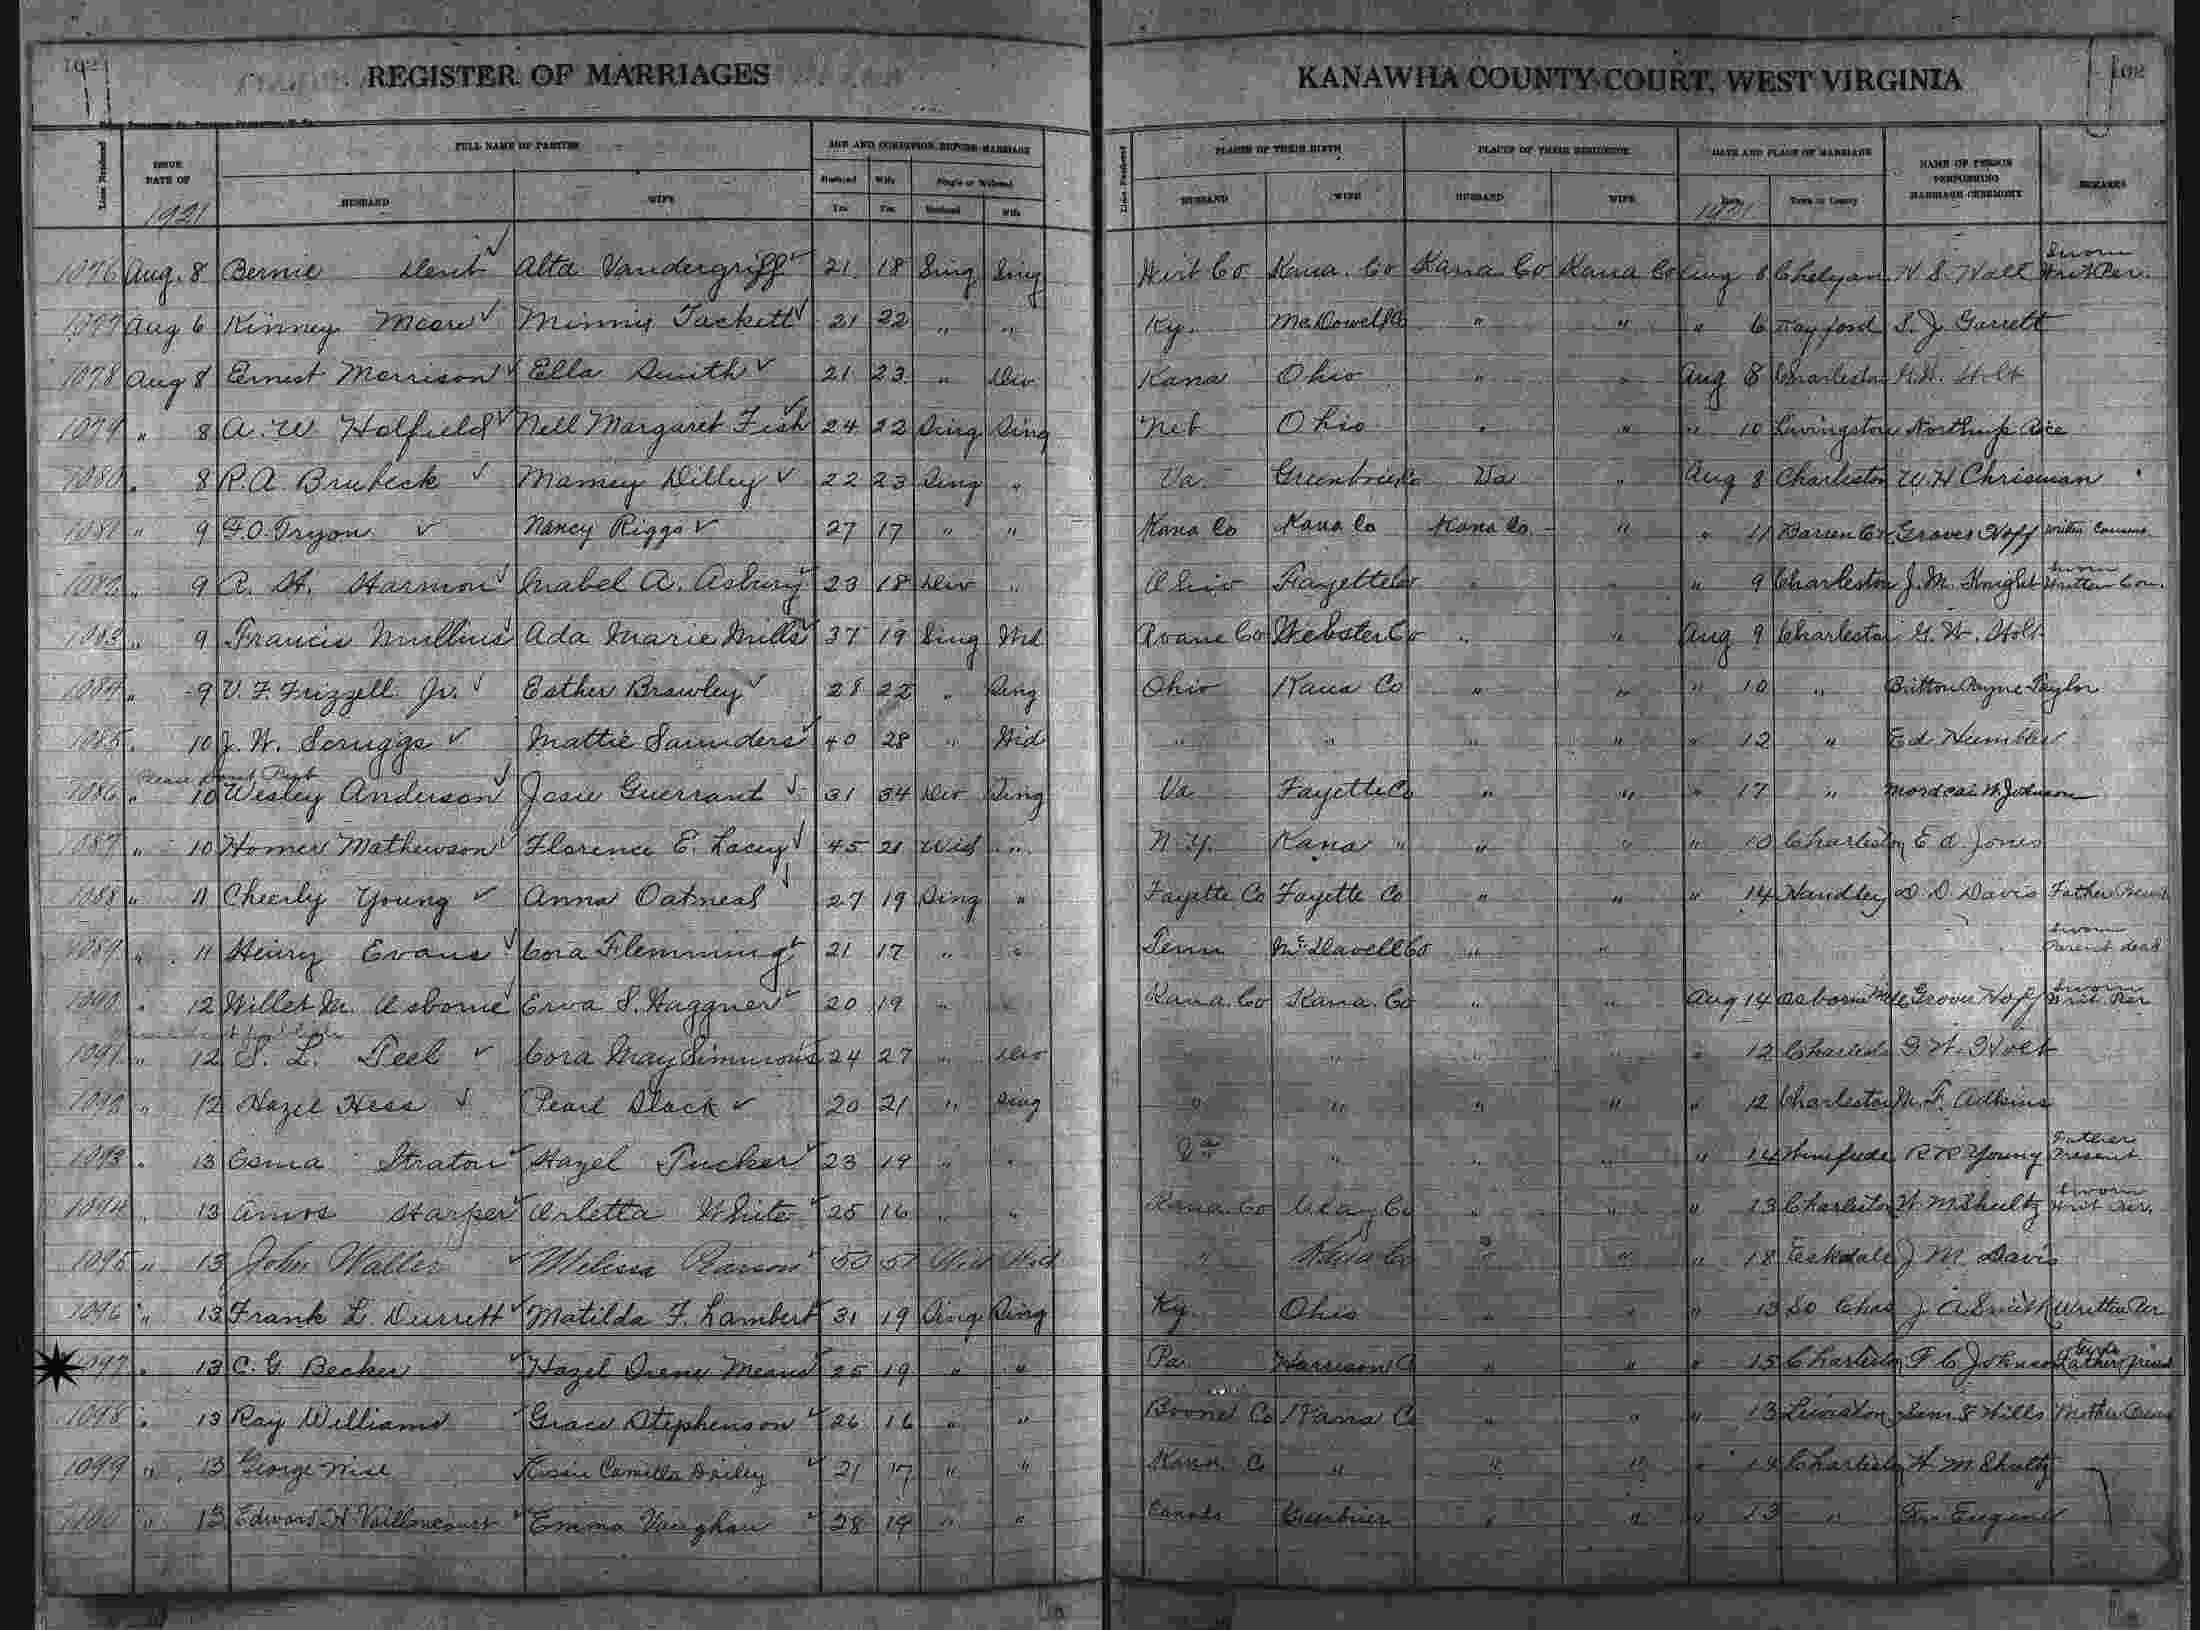 102
REGISTER OF MARRIAGES
KANAWHA COUNTY COURT, WEST VIRGINIA
102
FULL NAME OF PARTIES AGE AND CONDITION BEFORE MARRIAGE PLACES OF THEIR BIRTH PLACES OF THEIR RESIDENCE DATE AND PLACE OF MARRIAGE NAME OF PERSON PERFORMING MARRIAGE CEREMONY REMARKS
ISSUE DATE OF HUSBAND WIFE Husband Wife Single or Widowed HUSBAND WIFE HUSBAND WIFE Town or County
Yrs Yrs Husband Wife
1921 1921
1076 Aug. 8 Bernie Dent Alta Vandergriff 21 18 Sing Sing Wirt Co Kana. Co Kana Co Kana Co Aug 8 Chelyan Sworn Writ Per.
1077 Aug 6 Kinney Moore Minnie Tackett 21 22 " " Ky. McDowell Co " " " 6 Kayford S. J. Garrett
1078 Aug 8 Ernest Morrison Ella Smith 21 23 " Div Kana Ohio " " Aug 8 Charleston Holt
1079 " 8 A. W Holfield Nell Margaret Fish 24 22 Sing Sing Neb Ohio " " " 10 Livingston Northup Rice
1080 " 8 R. A. Brubeck Mamey Dilley 22 23 Sing " Va. Greenbrier Co Va " Aug 8 Charleston W. H Chrisman
1081 " 9 F. O. Tryon Nancy Riggs 27 17 " " Kana Co Kana Co Kana Co " " 11 Grover Hoff Written Consent
1082 " 9 R. H. Harmon Mabel A. Asbury 23 18 Div " Ohio Fayette Co " " " 9 Charleston J. M. Knight Sworn Written Con.
1083 " 9 Francis Mullins Ada Marie Mills 37 19 Sing Wd Roane Co Webster Co " " Aug 9 Charleston G. W. Holt
1084 " 9 V. F. Frizzell Jr. Esther Brawley 28 22 " Sing Ohio Kana Co " " " 10 " Britton Payne Taylor
1085 " 10 J. W. Scruggs Mattie Saunders 40 28 " Wid " " " " " 12 " Ed Humbles
Please Dont Pub
1086 " 10 Wesley Anderson Josie Guerrant 31 34 Div Sing Va Fayette Co " " " 17 " Mordcai W. Johnson
1087 " 10 Homer Mathewson Florence E. Lacey 45 21 Wid " N. Y. Kana " " " " 10 Charleston E d Jones
1088 " 11 Cheerly Young Anna Oatneal 27 19 Sing " Fayette Co Fayette Co " " " 14 Handley D D Davis Father
1089 " 11 Henry Evans Cora Flemming 21 17 " " Tenn McDowell Co " " Sworn Parent dead
1090 " 12 Willet M. Osborne Erva S. Waggner 20 19 " " Kana. Co Kana. Co " " Aug 14 Grover Hoff Sworn Writ Per
1091 " 12 S. L. Teel Cora May Simmons 24 27 " Div " " " " " 12 Charles G. W. Holt
1092 " 12 Hazel Hess Pearl Slack 20 21 " Sing " " " " " 12 Charleston M. F. Adkins
1093 " 13 Esma Straton Hazel Tucker 23 19 " " " " " " 14 Winifrede R R Young Father Present
1094 " 13 Amos Harper Orletta White 25 16 " " Kana. Co Clay Co " " " 13 Charleston W. M Shultz Sworn Writ Per.
1095 " 13 John Waller Melissa Carson 50 Wid Wid " Kana Co " " " 18 Eskdale J M Davis
1096 " 13 Frank L. Durrett Matilda F. Lambert 31 19 Sing Sing Ky. Ohio " " " 13 So Chas J A Smith Written Per
1097 " 13 C. G. Becker Hazel Irene Means 25 19 " " Pa. Harrison Co " " " 15 Charleston F C Johnson Father
1098 " 13 Ray Williams Grace Stephenson 26 16 " " Boone Co Kana Co " " " 13 Leewiston Sam S Wills Mother
1099 " 13 George Wise Camilla Dailey 21 17 " " Kana. Co " " " " 14 Charleston W. M Shultz
1100 " 13 Edward H Vaillancourt Emma Vaughan 28 19 " " Canada " " " 13 " Eugene